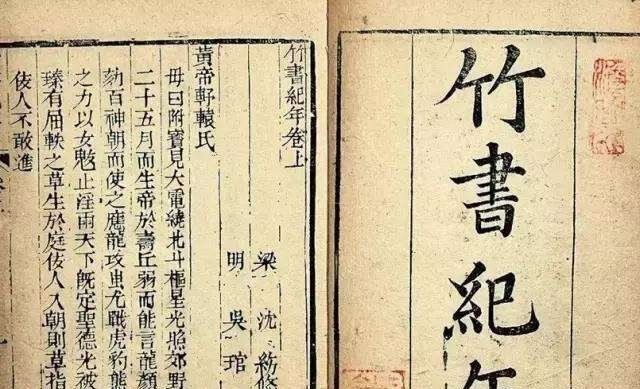 竹書紀年
竹書紀年卷上
梁 沈 約修
明 吳 琯
黃帝軒轅氏
毋曰附寶見大電繞北斗樞星光照郊野
二十五月而生帝於壽丘弱而能言龍顏
劾百神朝而使之應龍攻蚩尤戰虎豹熊
之力以女魃止淫雨天下既定聖德光被
臻有屈軼之草生於庭佞人入朝則草指
佞人不敢進